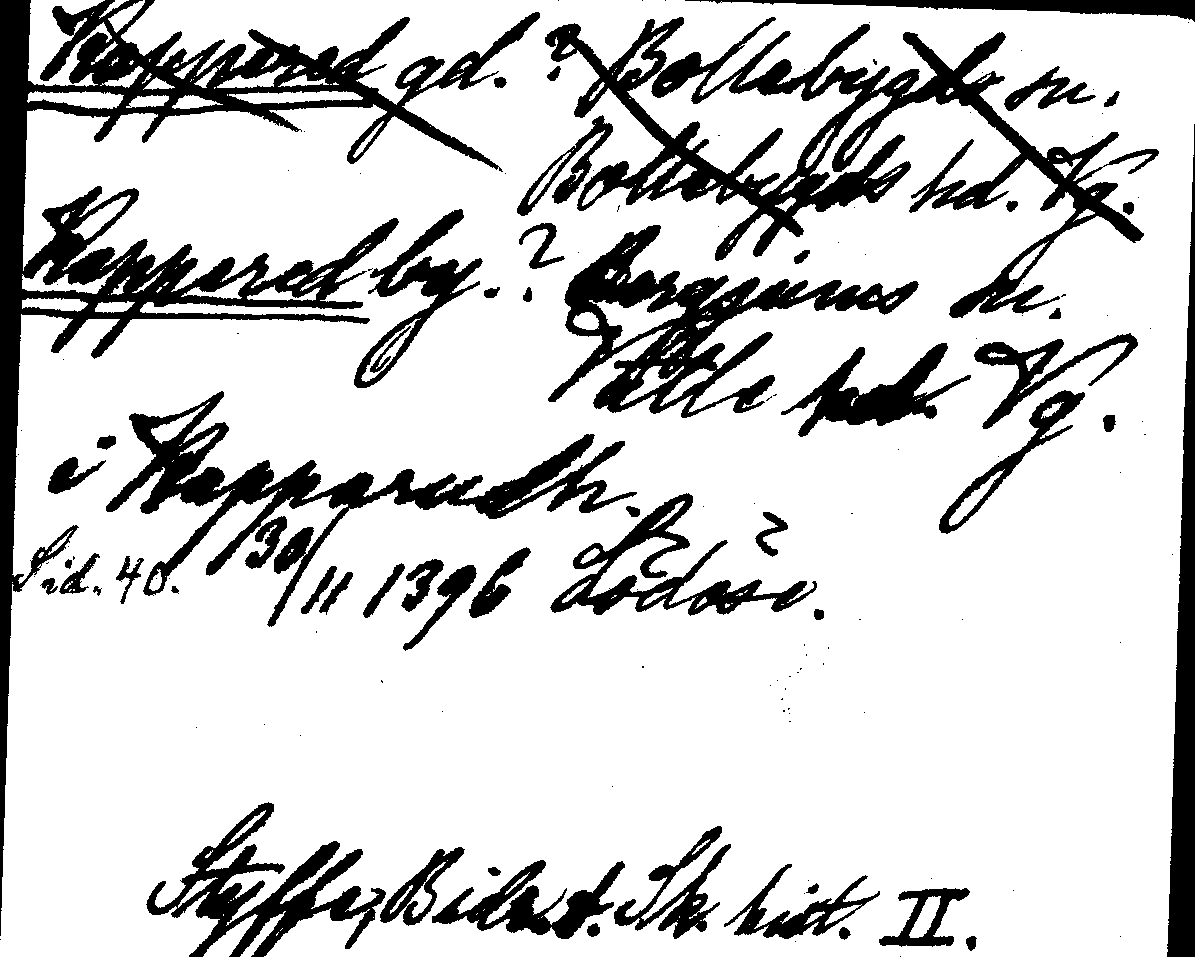 Kappered gd. ? Bollebygds sn.
Bollebygds hd. Vg.
Kappered by. ? Bergsjums sn.
Vätle hd. Vg.
i Kapparudh.
Sid. 40. 30/11 1396 Lödöse.
Styffe, Bidr. t. Sk. hist. II.